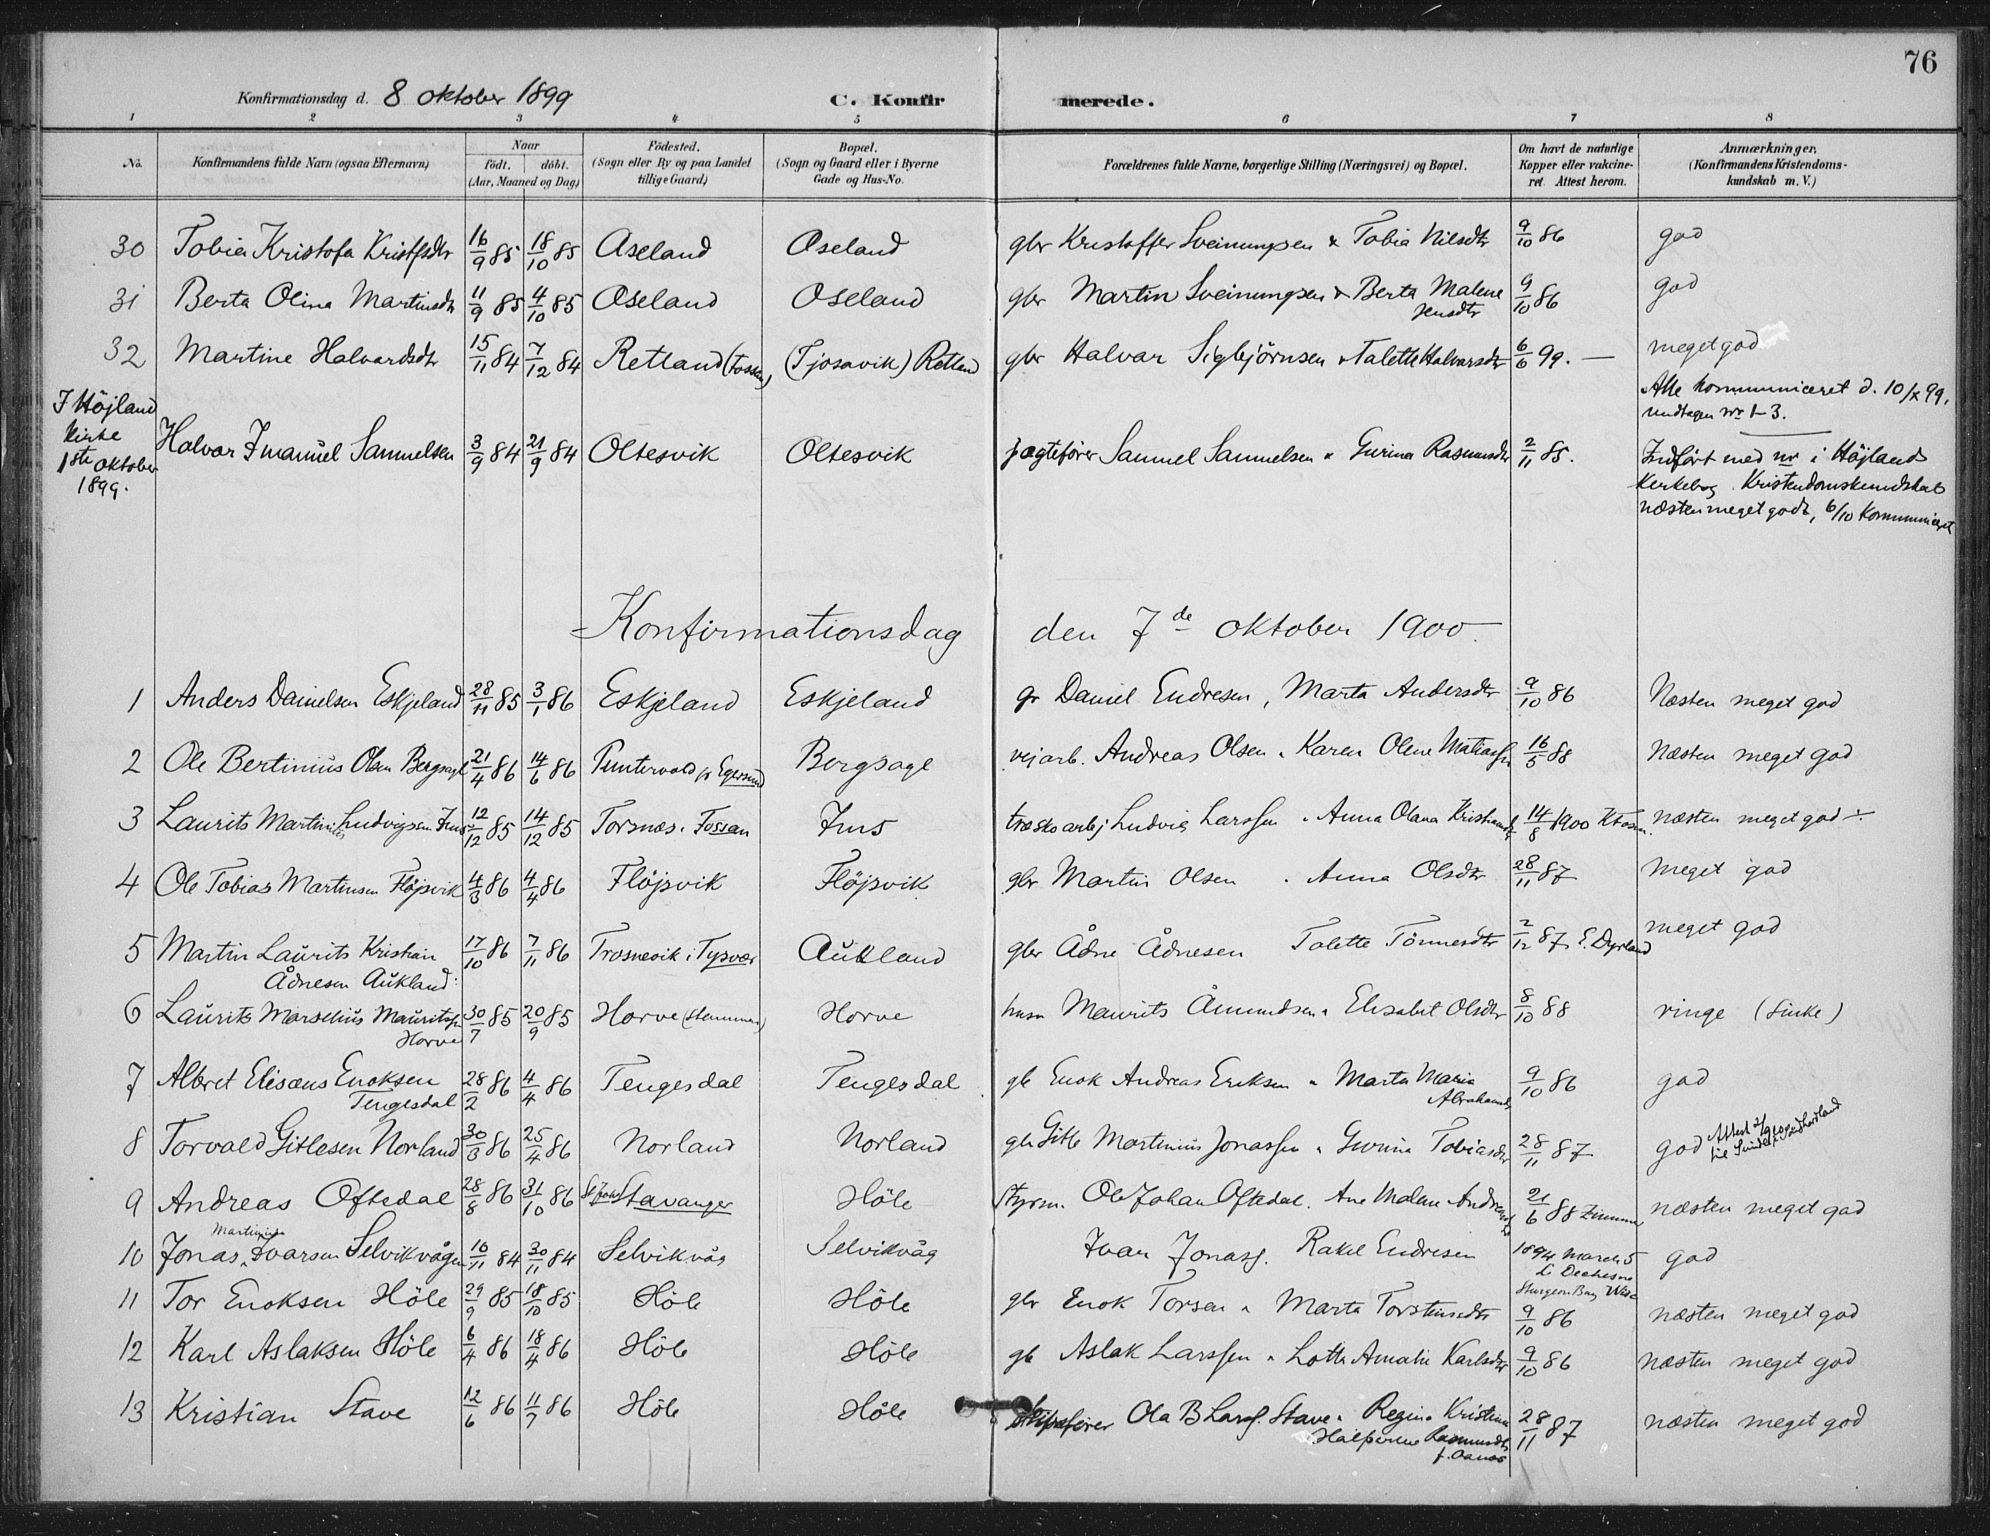 76
Konfirmationsdag d. 8 oktober 1899 C. Konfirmerede.
1 2 3 4 5 6 7 8
No. Konfirmandens fulde Navn (ogsaa Efternavn) Naar født. døbt. (Aar, Maaned og Dag) Fødested. (Sogn eller By og paa Landet tillige Gaard) Bopæl. (Sogn og Gaard eller i Byerne Gade og Hus-No. Forældrenes fulde Navne, borgerlige Stilling (Næringsvei) og Bopæl. Om havt de naturlige Kopper eller vakcineret. Attest herom. Anmærkninger. (Konfirmandens Kristendomskundskab m. V.)
30 Tobia Kristofa Kristfsdtr 16/9 85 18/10 85 Oseland Oseland gbr Kristoffer Sveinungsen & Tobia Nilsdtr 9/10 86 god
31 Berta Olina Martinsdtr 11/9 85 4/10 85 Oseland Oseland gbr Martin Sveinungsen & Berta Malene Jensdtr 9/10 86 god
32 Martine Halvardsdtr 15/11 84 7/12 84 Retland (Fossan) (Tjosavik) Retland gbr Halvar Sigbjørnsen & Talette Halvarsdtr 6/6 99. — meget god
Alle kommuniceret d. 10/X 99.
undtagen nr 1-3.
I Höjland
Kirke
1ste oktober
1899.
Halvor Imanuel Samuelsen 3/9 84 21/9 84 Oltesvik Oltesvik jægtefører Samuel Samuelsen & Gurina Rasmusdtr 2/11 85. Indført med nr i Höjlands
Kerkebog. Kristendomskundskab
næsten meget godt, 6/10 Kommuniceret
Konfirmationsdag den 7de oktober 1900.
1 Anders Danielsen Eskjeland 28/11 85 3/1 86 Eskjeland Eskjeland gr Daniel Endresen, Marta Andersdtr 9/10 86 Næsten meget god
2 Ole Bertinius Olsen Bergsagel 21/4 86 14/6 86 Puntervold pr Egersund Bergsage vejarb. Andreas Olsen & Karen Olene 16/5 88 Næsten meget god
3 Laurits Martinius Ludvigsen Ims 12/12 85 14/12 85 Torsnæs. Fossan Ims træskoarbj Ludvig Larssen & Anna Olana 14/8 1900 næsten meget god ÷
4 Ole Tobias Martinsen Flöjsvik 4/3 86 4/4 86 Flöjsvik Flöjsvik gbr Martin Olsen & Anna Olsdtr 28/11 87 meget god
5 Martin Laurits Kristian
Ådnesen Aukland 17/10 86 7/11 86 Trosnevik i Tysvær Aukland gbr Ådne Ådnesen Tolette Tönnesdtr 2/12 87 E. Dyrland meget god
6 Laurits Marselius Mauritsen
Horve 30/7 85 20/9 85 Horve Horve husm Maurits Åmundsen & Elisabet Olsdtr 8/10 88 ringe (Sinke)
7 Albret Elisæus Enoksen
Tengesdal 28/2 86 4/4 86 Tengesdal Tengesdal gb Enok Andreas Eriksen & Marta Maria
Abrahamsd 9/10 86 god
8 Torvald Gitlesen Norland 30/3 86 25/4 86 Norland Norland gbr Gitle Martinius Jonassen & Gurina Tobiasdtr 28/11 87 god Attest
9 Andreas Oftedal 28/8 86 31/10 86 Stavanger Höle Styrm. Ole Johan Oftedal. Ane Malene Andreasdtr 21/6 88 Zimmer næsten meget god
10 Jonas Martinius Ivarsen Selvikvågen 16/11 84 30/11 84 Selvikvåg Selvikvåg Ivar Jonass. Rakel Endresen 1894 March 5
Sturgeon Bay Wisc god
11 Tor Enoksen Höle 29/9 85 18/10 85 Höle Höle gbr Enok Torsen & Marta Torstensdtr 9/10 86 næsten meget god
12 Karl Aslaksen Höle 6/4 86 18/4 86 Höle Höle gb Aslak Larssen & Lotte Amalie Karlsdtr 9/10 86 næsten meget god
13 Kristian Stave 12/6 86 11/7 86 Höle Höle skipsfører Ola B Larss. Stave & Regina Kristina
Rasmusdtr 28/11 87 næsten meget god